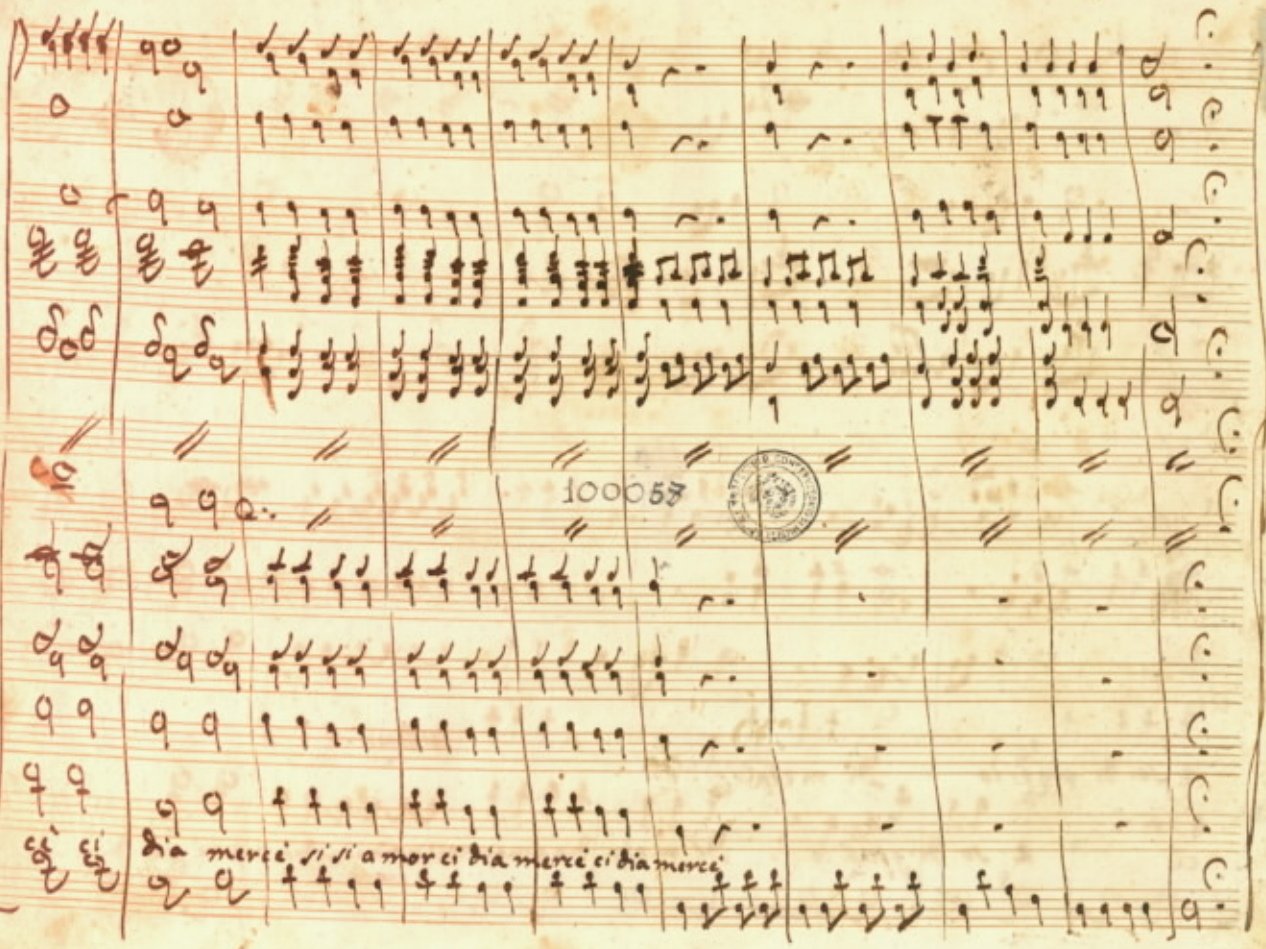 100057
ci ci
dia merci si si amor ci dia merci ci dia merci